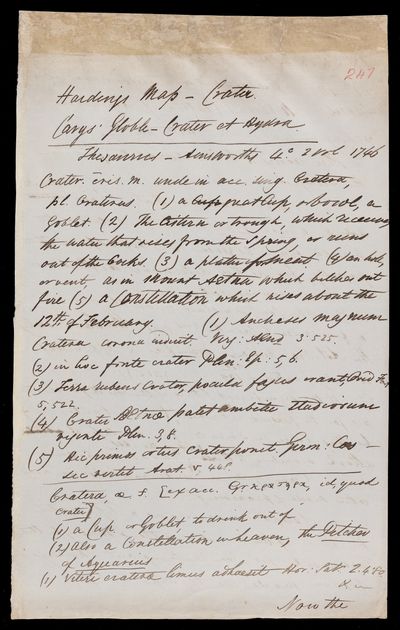 247
Hardings Map - Crater.
Carys' Globe - Crater et Hydra.
Thesaurus - Ainsworths 4.o 2 vol 1746
Crater. eris. m. unde in acc. sing. Cratera,
pl. Crateras. (1) a great Cup, or bowl, a
Goblet. (2) The Cistern or trough, which receives
the water that rises from the Spring, or runs
out of the Cocks. (3) a platter (4) an hole,
or vent, as in Mount Aetna which belches out
fire (5) a Constellation which rises about the
12th of February. (1) Anchises magnum
Cratera corona induit. Virg. Aen. 3.525.
(2) in hoc fonte crater Plin. Ep. 5,6.
(3) Terra rubens Crater, pocula fagus erant, Ovid Fas
5,522.
(4) Crater Aetnae patet ambitu stadiorum
viginti Plin. 3,8.
(5) Hic primos ortus crater ponit. Germ: Caes
sic vertit Arat. v. 448.
Cratera, æ f. [ex acc. Gr κρατηρα, id quod
Crater]
(1) a Cup or Goblet to drink out of
(2) also a Constellation in heaven, the Pitcher
of Aquarius
(1) Vitere craterae limus adhaesit Hor. Sat. 2.4.80
Now the